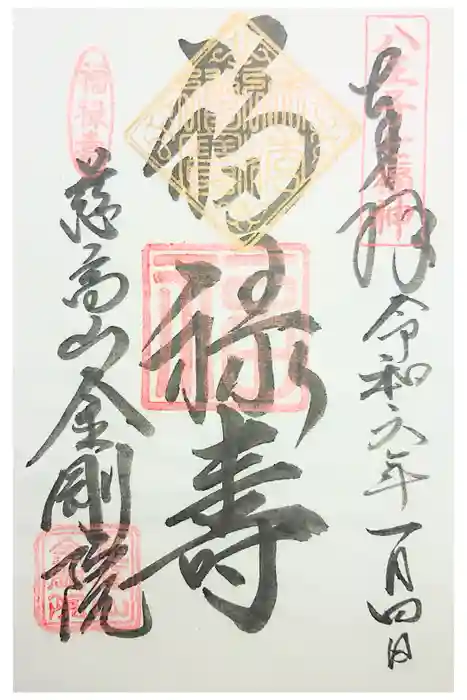 八王子七福神
奉拝
令和六年一月四日
福禄寿
福禄寿
慈高山金剛院